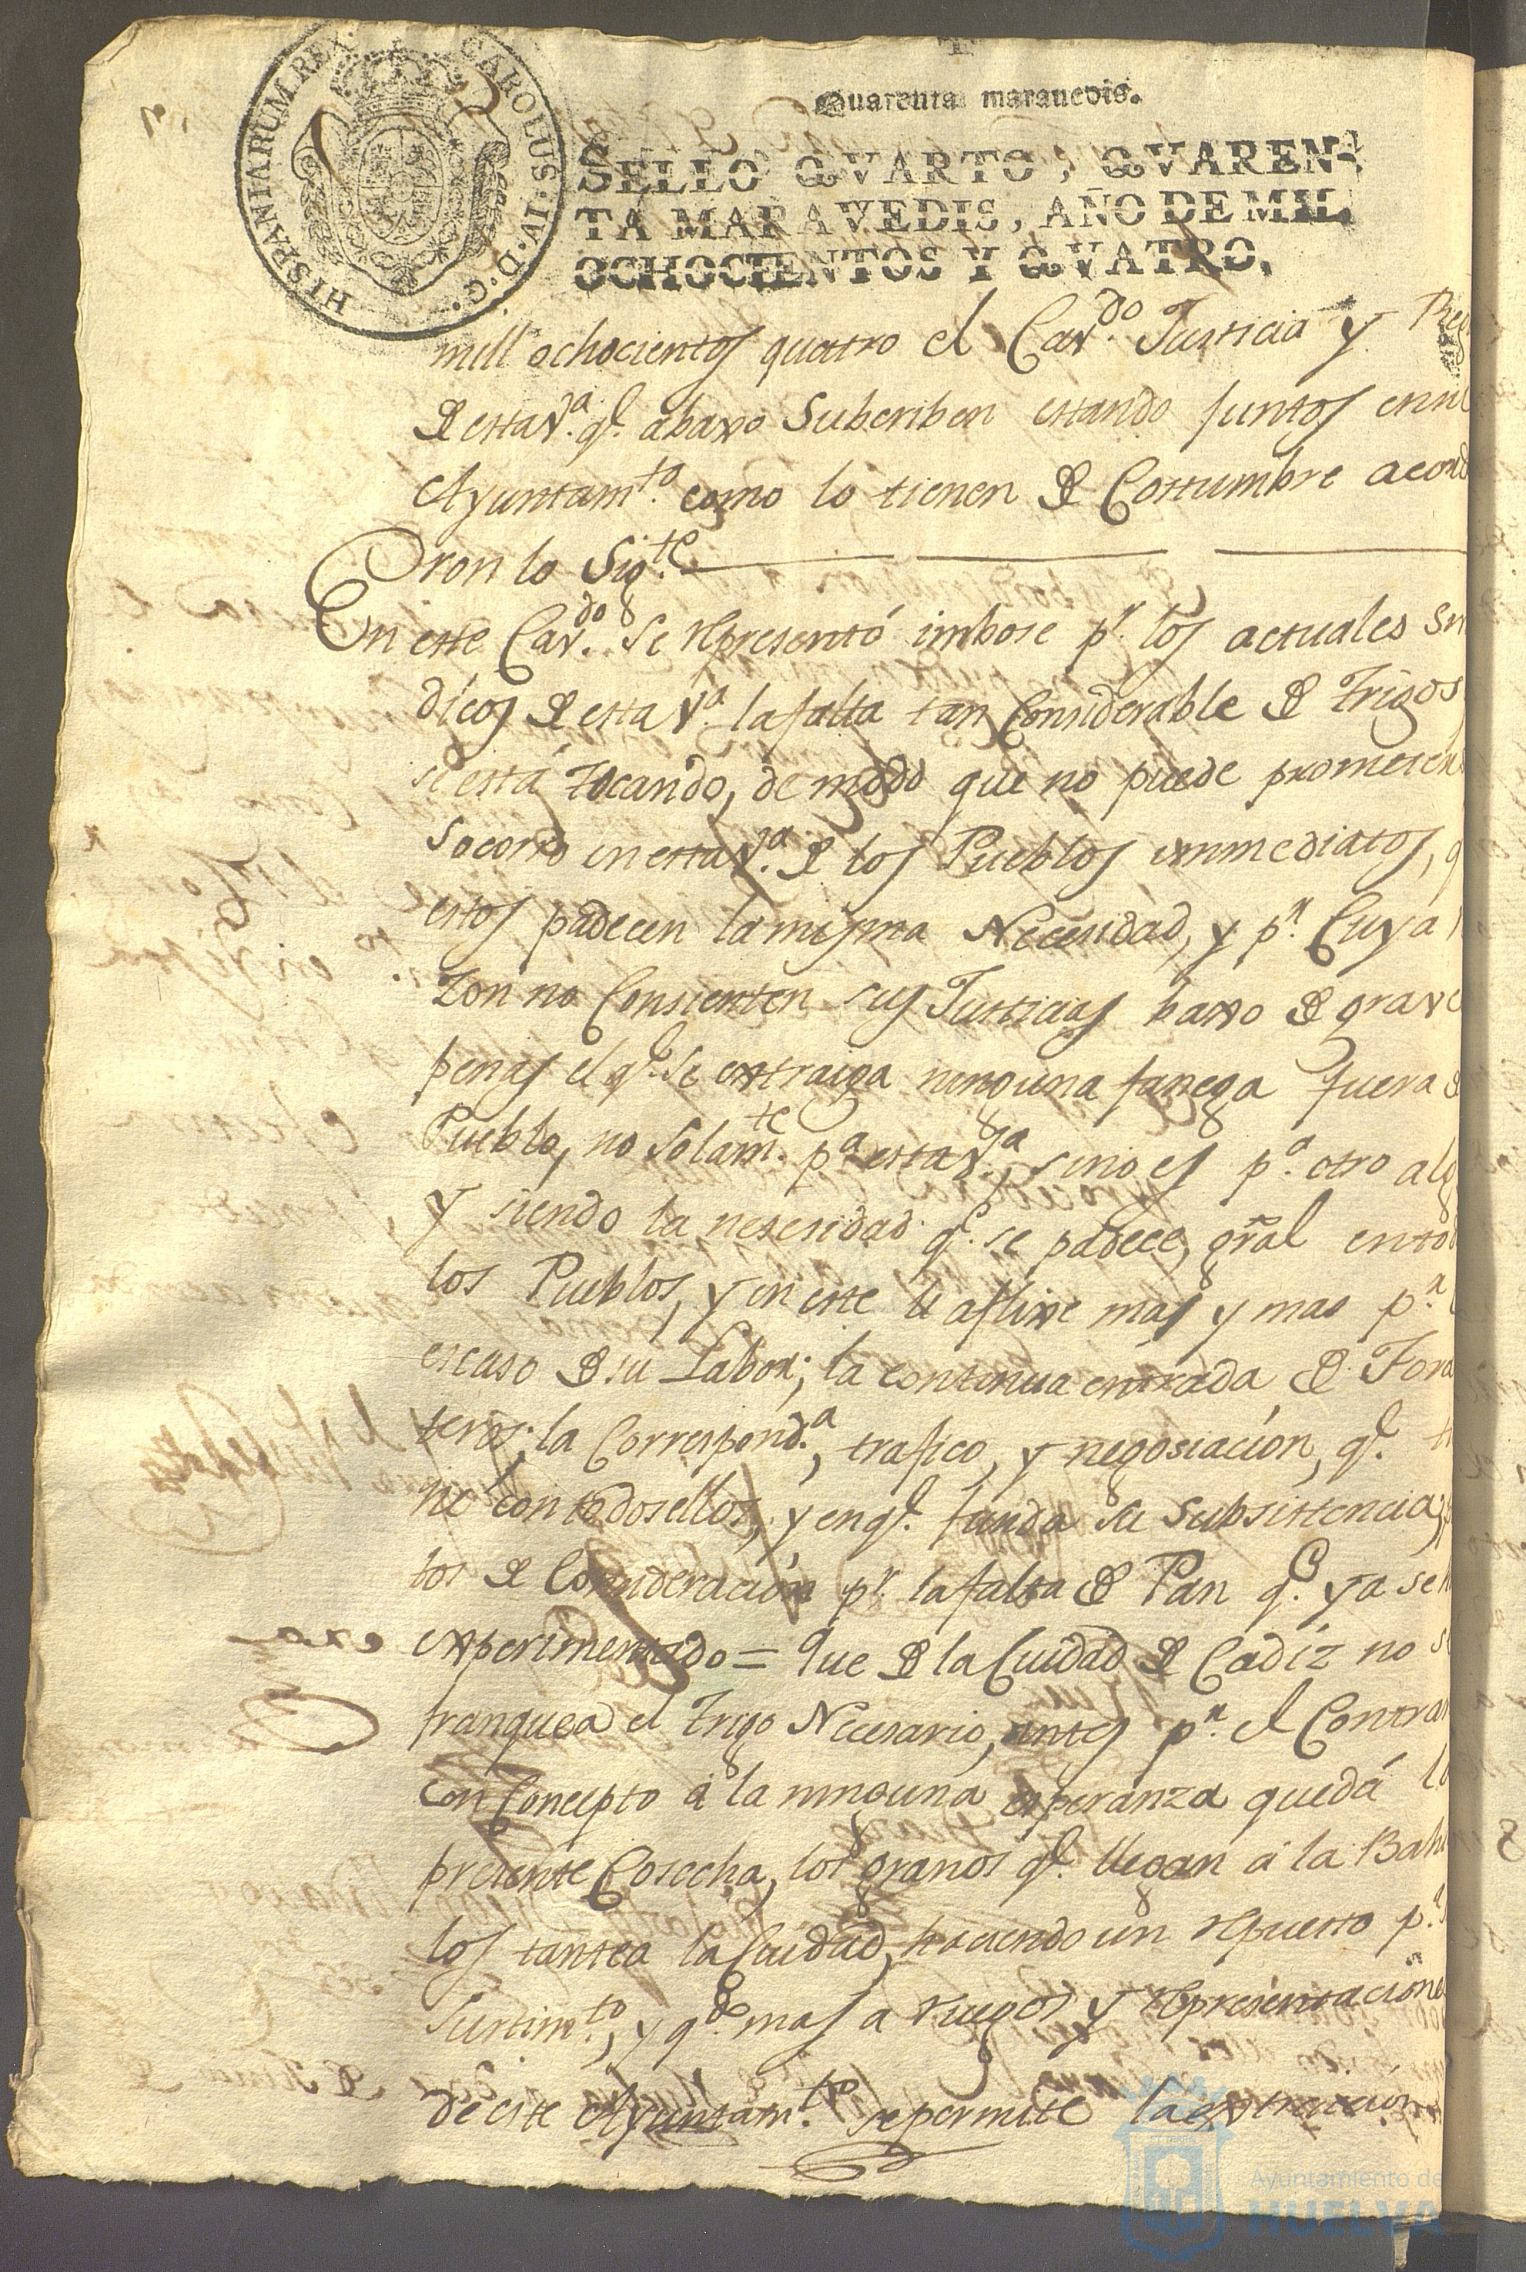 HISPANIARUM REX. CAROLUS. IV. D. G.
Quarenta marauedis.
SELLO QVARTO, QVAREN-
TA MARAVEDIS, AÑO DE MIL
OCHOCIENTOS Y QVATRO.
mill ochocientos quatro el Cavdo. Justicia y Reg
de esta Va. qe. abaxo Subcriben estando juntos en
Ayuntamto. como lo tienen de Costumbre acord
aron lo Sigte.
En este Cavdo. se representó pr. los actuales Sin
dicos de esta Va. la falta tan Considerable de Trigos
se está tocando, de modo que no puede prometer
socorro en esta Va. de los Pueblos immediatos, q
estos padecen la misma Necesidad, y pr. Cuya
zon no Consienten sus Justicias baxo de grave
penas el qe. se extraiga ninguna fanega fuera d
Pueblo, no solamte. pa esta Va., sino es pa. otro alg
y siendo la necesidad qe. se padece, gral en tod
los Pueblos, y en este le aflixe mas y mas pr.
escaso de su Labor; la continua entrada de Fora
teros; la Corresponda., trafico, y negosiación, qe. ti
ne con todos ellos, y en qe. funda su subsistencia,
tos de Consideración pr. la falta de Pan qe. ya se h
experimentado = Que de la Ciudad de Cadiz no s
franquea el Trigo Necesario, antes pr. el Contrar
con Concepto a la ninguna esperanza quedá l
presente Cosecha, los granos qe. llegan á la Bahi
los tantea la Ciudad, haciendo un repuesto pa.
Surtimto., y qdo. mas a ruegos y representacione
de este Ayuntamto. se permite la extracción
Ayuntamiento de
HUELVA